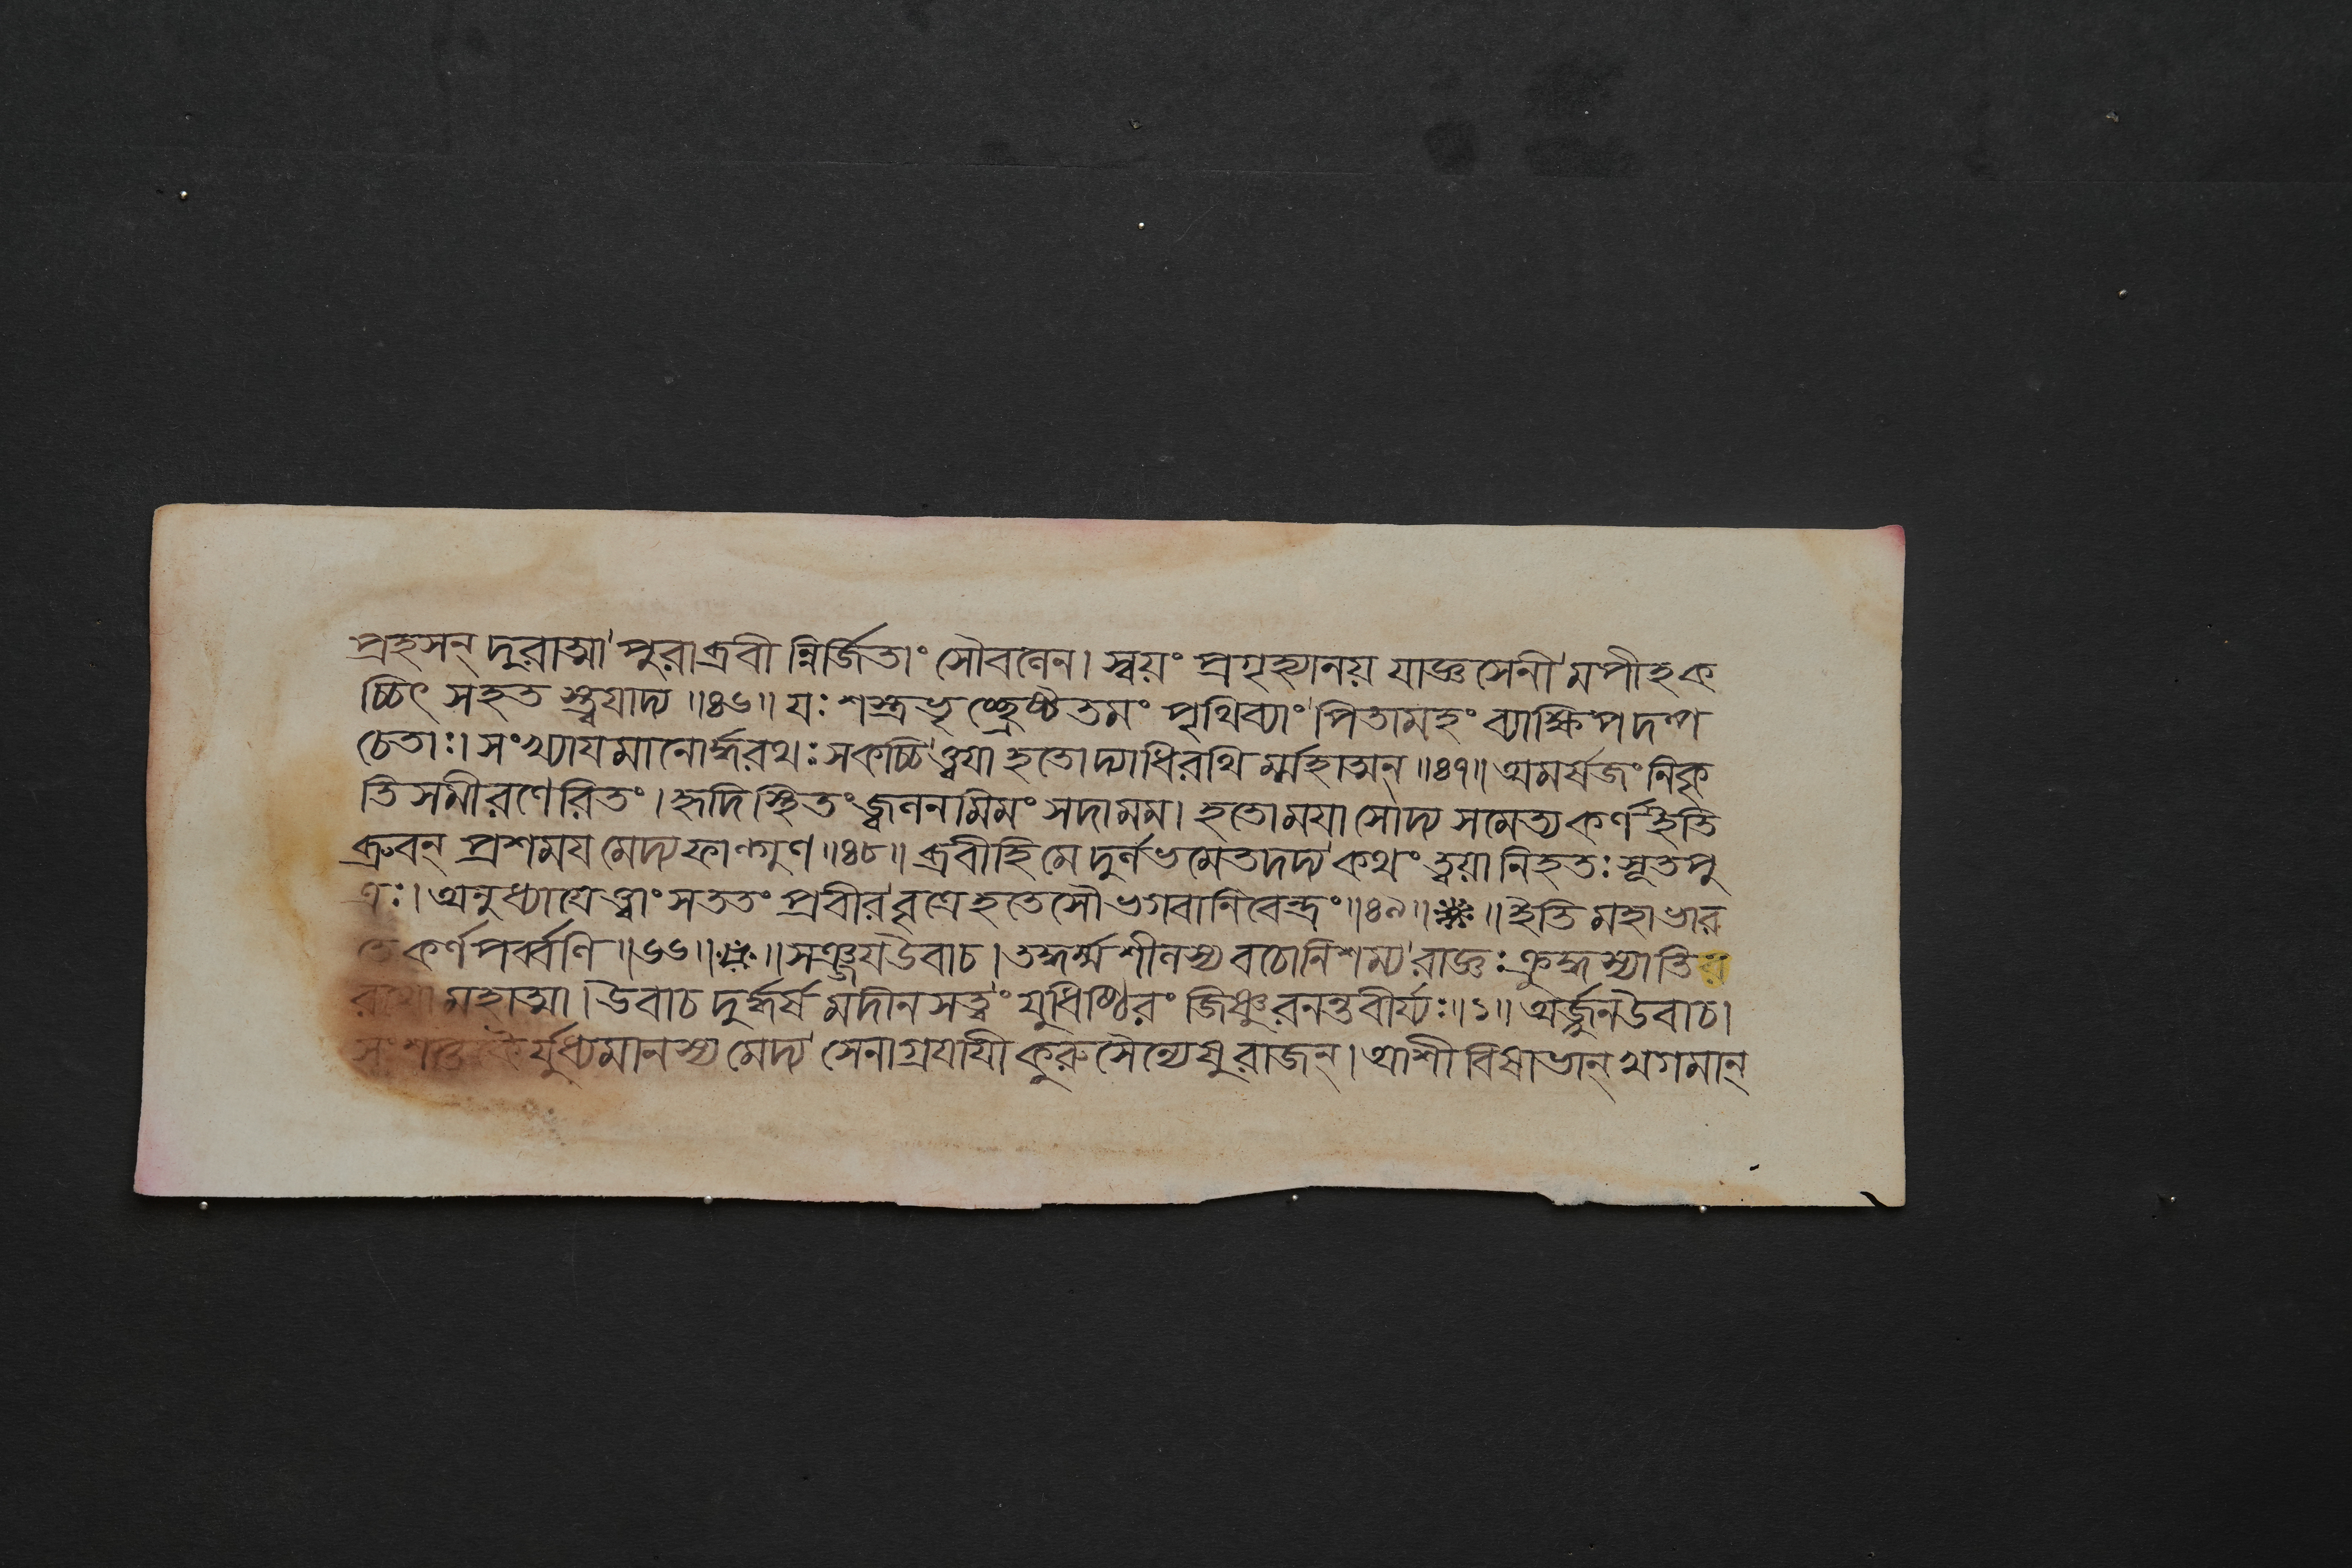 প্রহসন্ দুরাত্মা পুরাব্রবী ন্নির্জিতাং সৌবলেন। স্বয়ং প্রগৃহ্যানয় যাজ্ঞসেনী মপীহক
চ্চিৎ সহত স্ত্বযাদ্য ॥৪৬॥ যঃ শস্ত্রভৃচ্ছ্রেষ্ঠতমং পৃথিব্যাং পিতামহং ব্যাক্ষিপদল্প
চেতাঃ। সংখ্যাযমানোর্দ্ধরথঃ সকচ্চিত্ত্বযা হতোদ্যাধিরথি র্ম্মহাত্মন্ ॥৪৭॥ অমর্ষজং নিকৃ
তিসমীরণেরিতং। হৃদিস্থিতং জ্বলনমিমং সদামম। হতোময়া সোদ্য সমেত্য কর্ণ ইতি
ব্রুবন্ প্রশময মেদ্য ফাল্গুণ ॥৪৮॥ ব্রবীহি মে দুর্লভমেতদদ্য কথং ত্বয়া নিহতঃ সূতপু
ত্রঃ। অনুধ্যাযেত্ত্বাং সততং প্রবীর বৃত্রেহতেসৌ ভগবানিবেন্দ্রঃ ॥৪৯॥ ॥ ইতি মহাভার
তে কর্ণপর্ব্বণি ॥৬৬॥ ॥ সঞ্জয উবাচ। তদ্ধর্ম্মশীলস্য বচোনিশম্য রাজ্ঞঃ ক্রুদ্ধস্যাতির
রথো মহাত্মা। উবাচ দুর্দ্ধর্ষ মদীনসত্ত্বং যুধিষ্ঠিরং জিষ্ণুরনন্তবীর্য্যঃ ॥১॥ অর্জ্জুন উবাচ।
সংশপ্তকৈর্যুধ্যমানস্য মেদ্য সেনাগ্রযাযী কুরুসৈন্যেষু রাজন্। আশীবিষাভান্ খগমান্